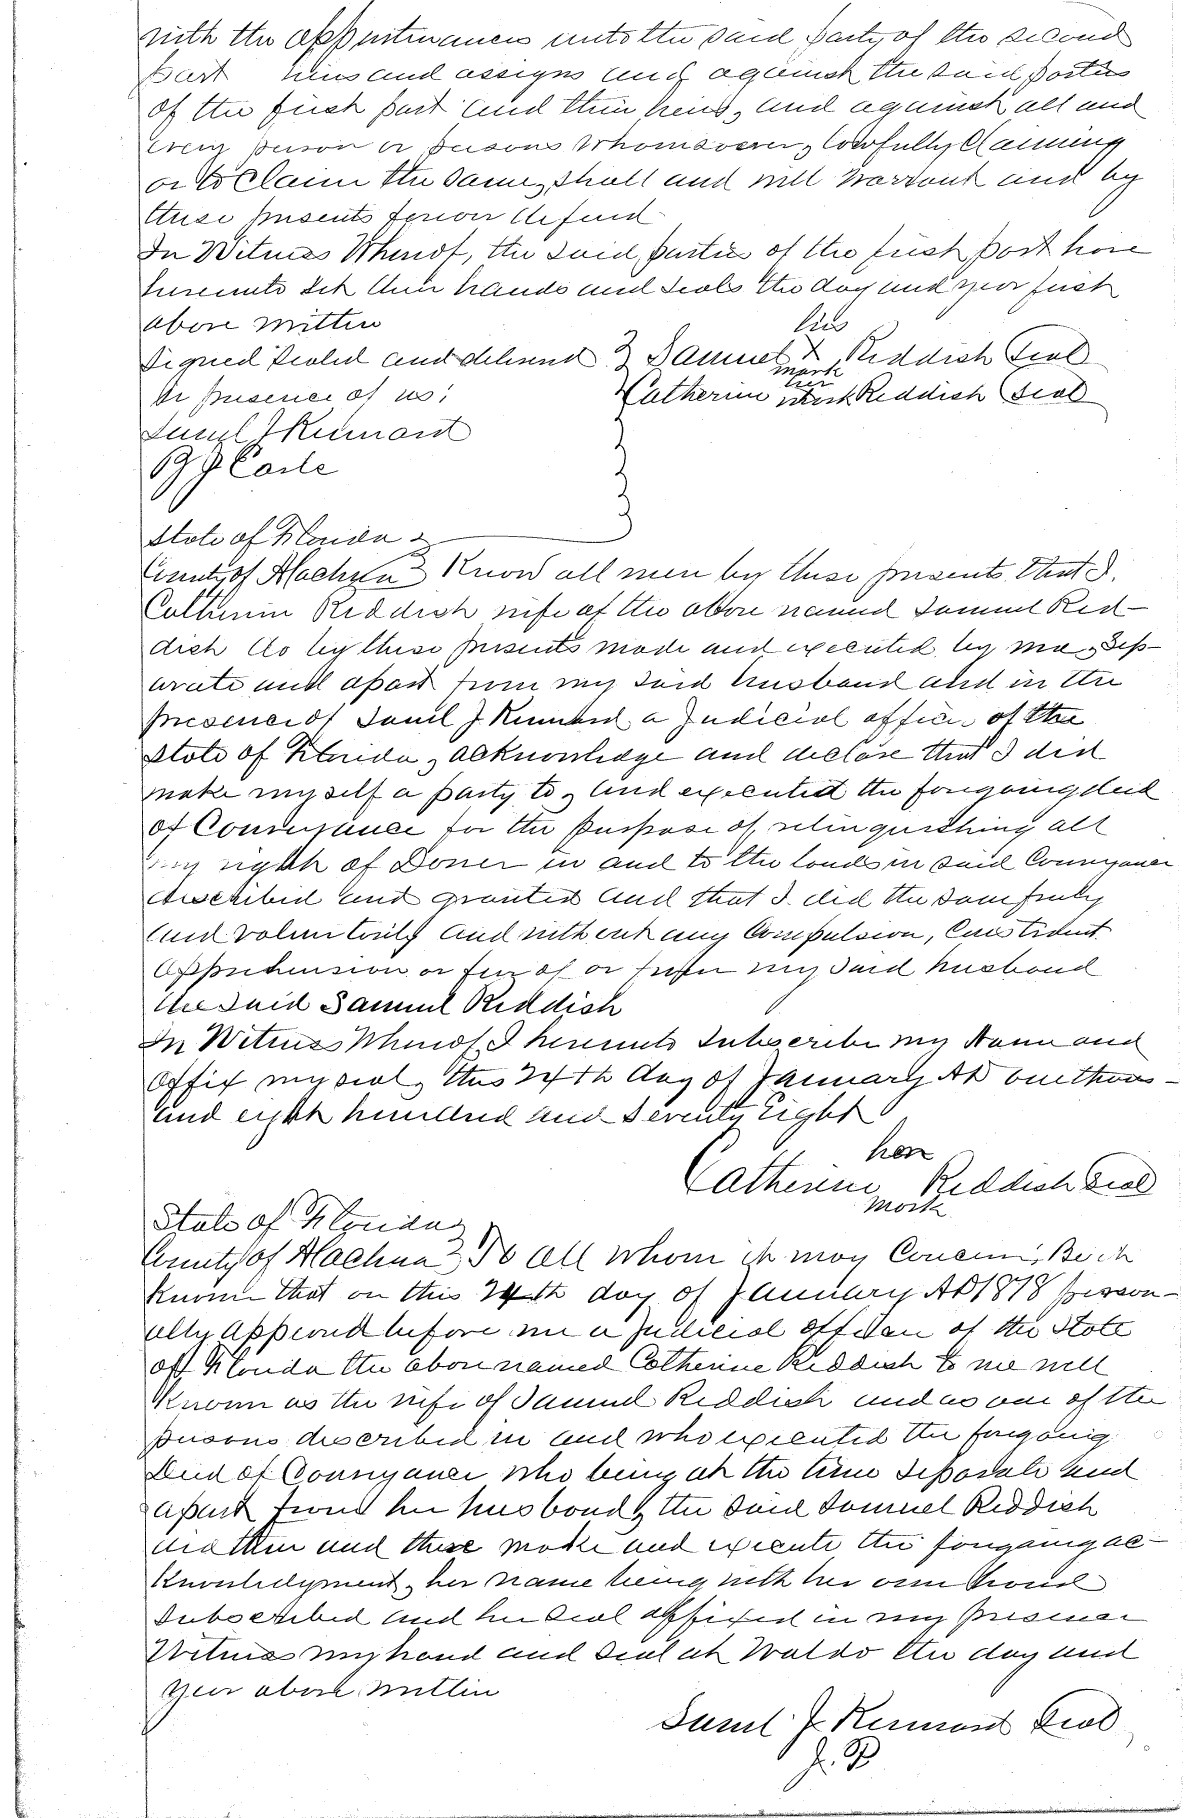 with the appurtenances unto the said party of the second
part heirs and assigns and against the said parties
of the first part and their heirs, and against all and
every person or persons whomsoever, lawfully Claiming
or to Claim the same, shall and will warrant and by
these presents forever defend
In Witness Whereof, the said parties of the first part have
hereunto set their hands and seals the day and year first
above written
Signed Sealed and delivered } Samuel his X mark Reddish Seal
In presence of us: Catherine her mark Reddish Seal
Saml J Kennard
State of Florida }
County of Alachua } Know all men by these presents. That I,
Catherine Reddish wife of the above named Samuel Red-
dish do by these presents made and executed by me, Sep-
arate and apart from my said husband and in the
presence of Saml J. Kennard a Judicial officer of the
State of Florida, acknowledge and declare that I did
make myself a party to, and executed the foregoing deed
of Conveyance for the purpose of relinquishing all
my right of Dower in and to the lands in said Conveyance
described and granted and that I did the same freely
and voluntarily and without any Compulsion, Constraint
Apprehension or fear of or from my said husband
the said Samuel Reddish
In Witness Whereof I hereunto Subscribe my Name and
Affix my seal, this 24th day of January AD one thous-
and eight hundred and Seventy Eight
Catherine her mark Reddish Seal
State of Florida }
County of Alachua } To all whom it may Concern, Be it
Known that on this 24th day of January AD 1878 person-
ally appeared before me a Judicial officer of the State
of Florida the above named Catherine Reddish to me well
Known as the wife of Samuel Reddish and as one of the
persons described in and who executed the foregoing
Deed of Conveyance who being at the time Separate and
apart from her husband, the said Samuel Reddish
did then and there make and execute the foregoing ac-
knowledgment, her name being with her own hand
Subscribed and her Seal affixed in my presence
Witness my hand and seal at Waldo the day and
year above written
Saml J. Kennard Seal
J. P